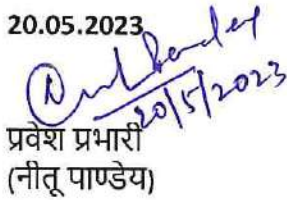 20.05.2023
20/5/2023
प्रवेश प्रभारी
(नीतू पाण्डेय)